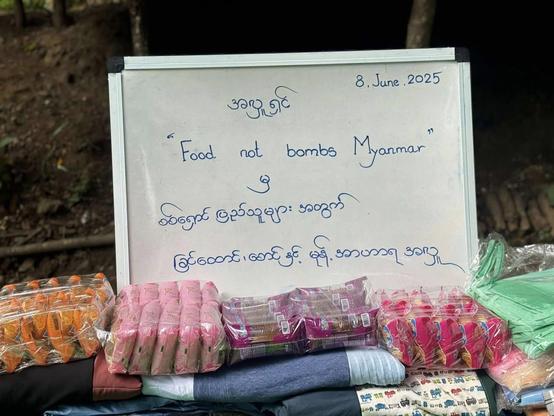 8.June.2025
အလှူရှင်
"Food not bombs Myanmar"
မှ
စစ်ရှောင် ပြည်သူများ အတွက်
ခြင်ထောင်၊ စောင်နှင့် မုန့်၊ အာဟာရ အလှူ